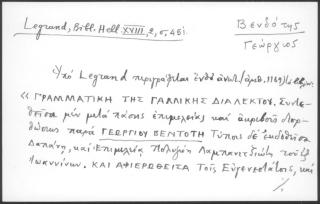 Legrand, Bibl. Hell. XVIII, 2, σ. 451
Βενδότης
Γεώργιος
Ὑπό Legrand περιγράφεται
« ΓΡΑΜΜΑΤΙΚΗ ΤΗΣ ΓΑΛΛΙΚΗΣ ΔΙΑΛΕΚΤΟΥ. Συντε-
θεῖσα μέν μετά πάσης ἐπιμελείας καί ἀκριβοῦς διορ-
θώσεως παρά ΓΕΩΡΓΙΟΥ ΒΕΝΤΟΤΗ Τύποις δέ ἐκδοθεῖσα
Δαπάνῃ, καί Ἐπιμελείᾳ Πολυζώη Λαμπανιτζιώτη τοῦ ἐξ
Ἰωαννίνων. ΚΑΙ ΑΦΙΕΡΩΘΕΙΣΑ Τοῖς Εὐγενεστάτοις, καί